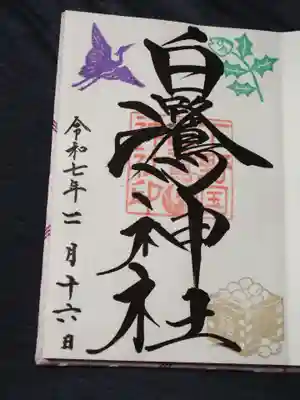 白鷺神社
令和七年二月十六日